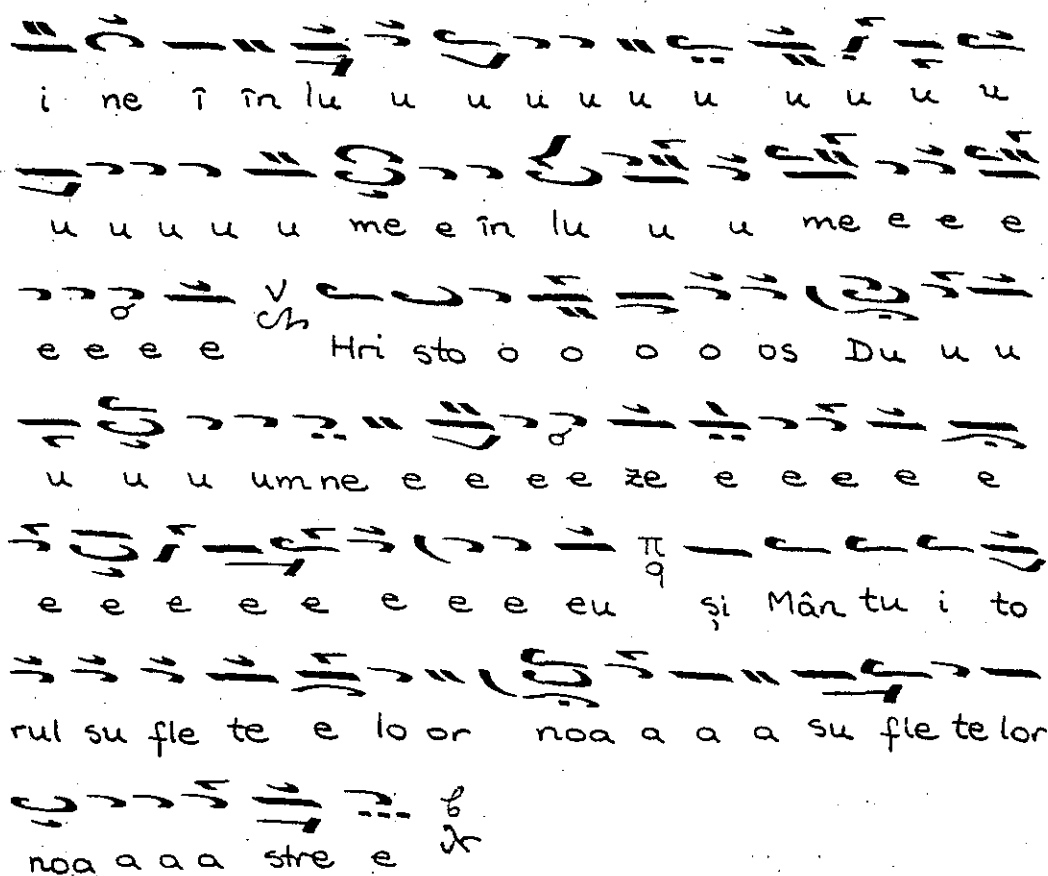 i ne î în lu u u u u u u u u u u
u u u u u me e în lu u u me e e e
e e e e Hri sto o o o o os Du u u
u u u um ne e e e e ze e e e e e
e e e e e e e e eu π q și Mân tu i to
rul su fle te e lo or noa a a a su fle te lor
noa a a a stre e